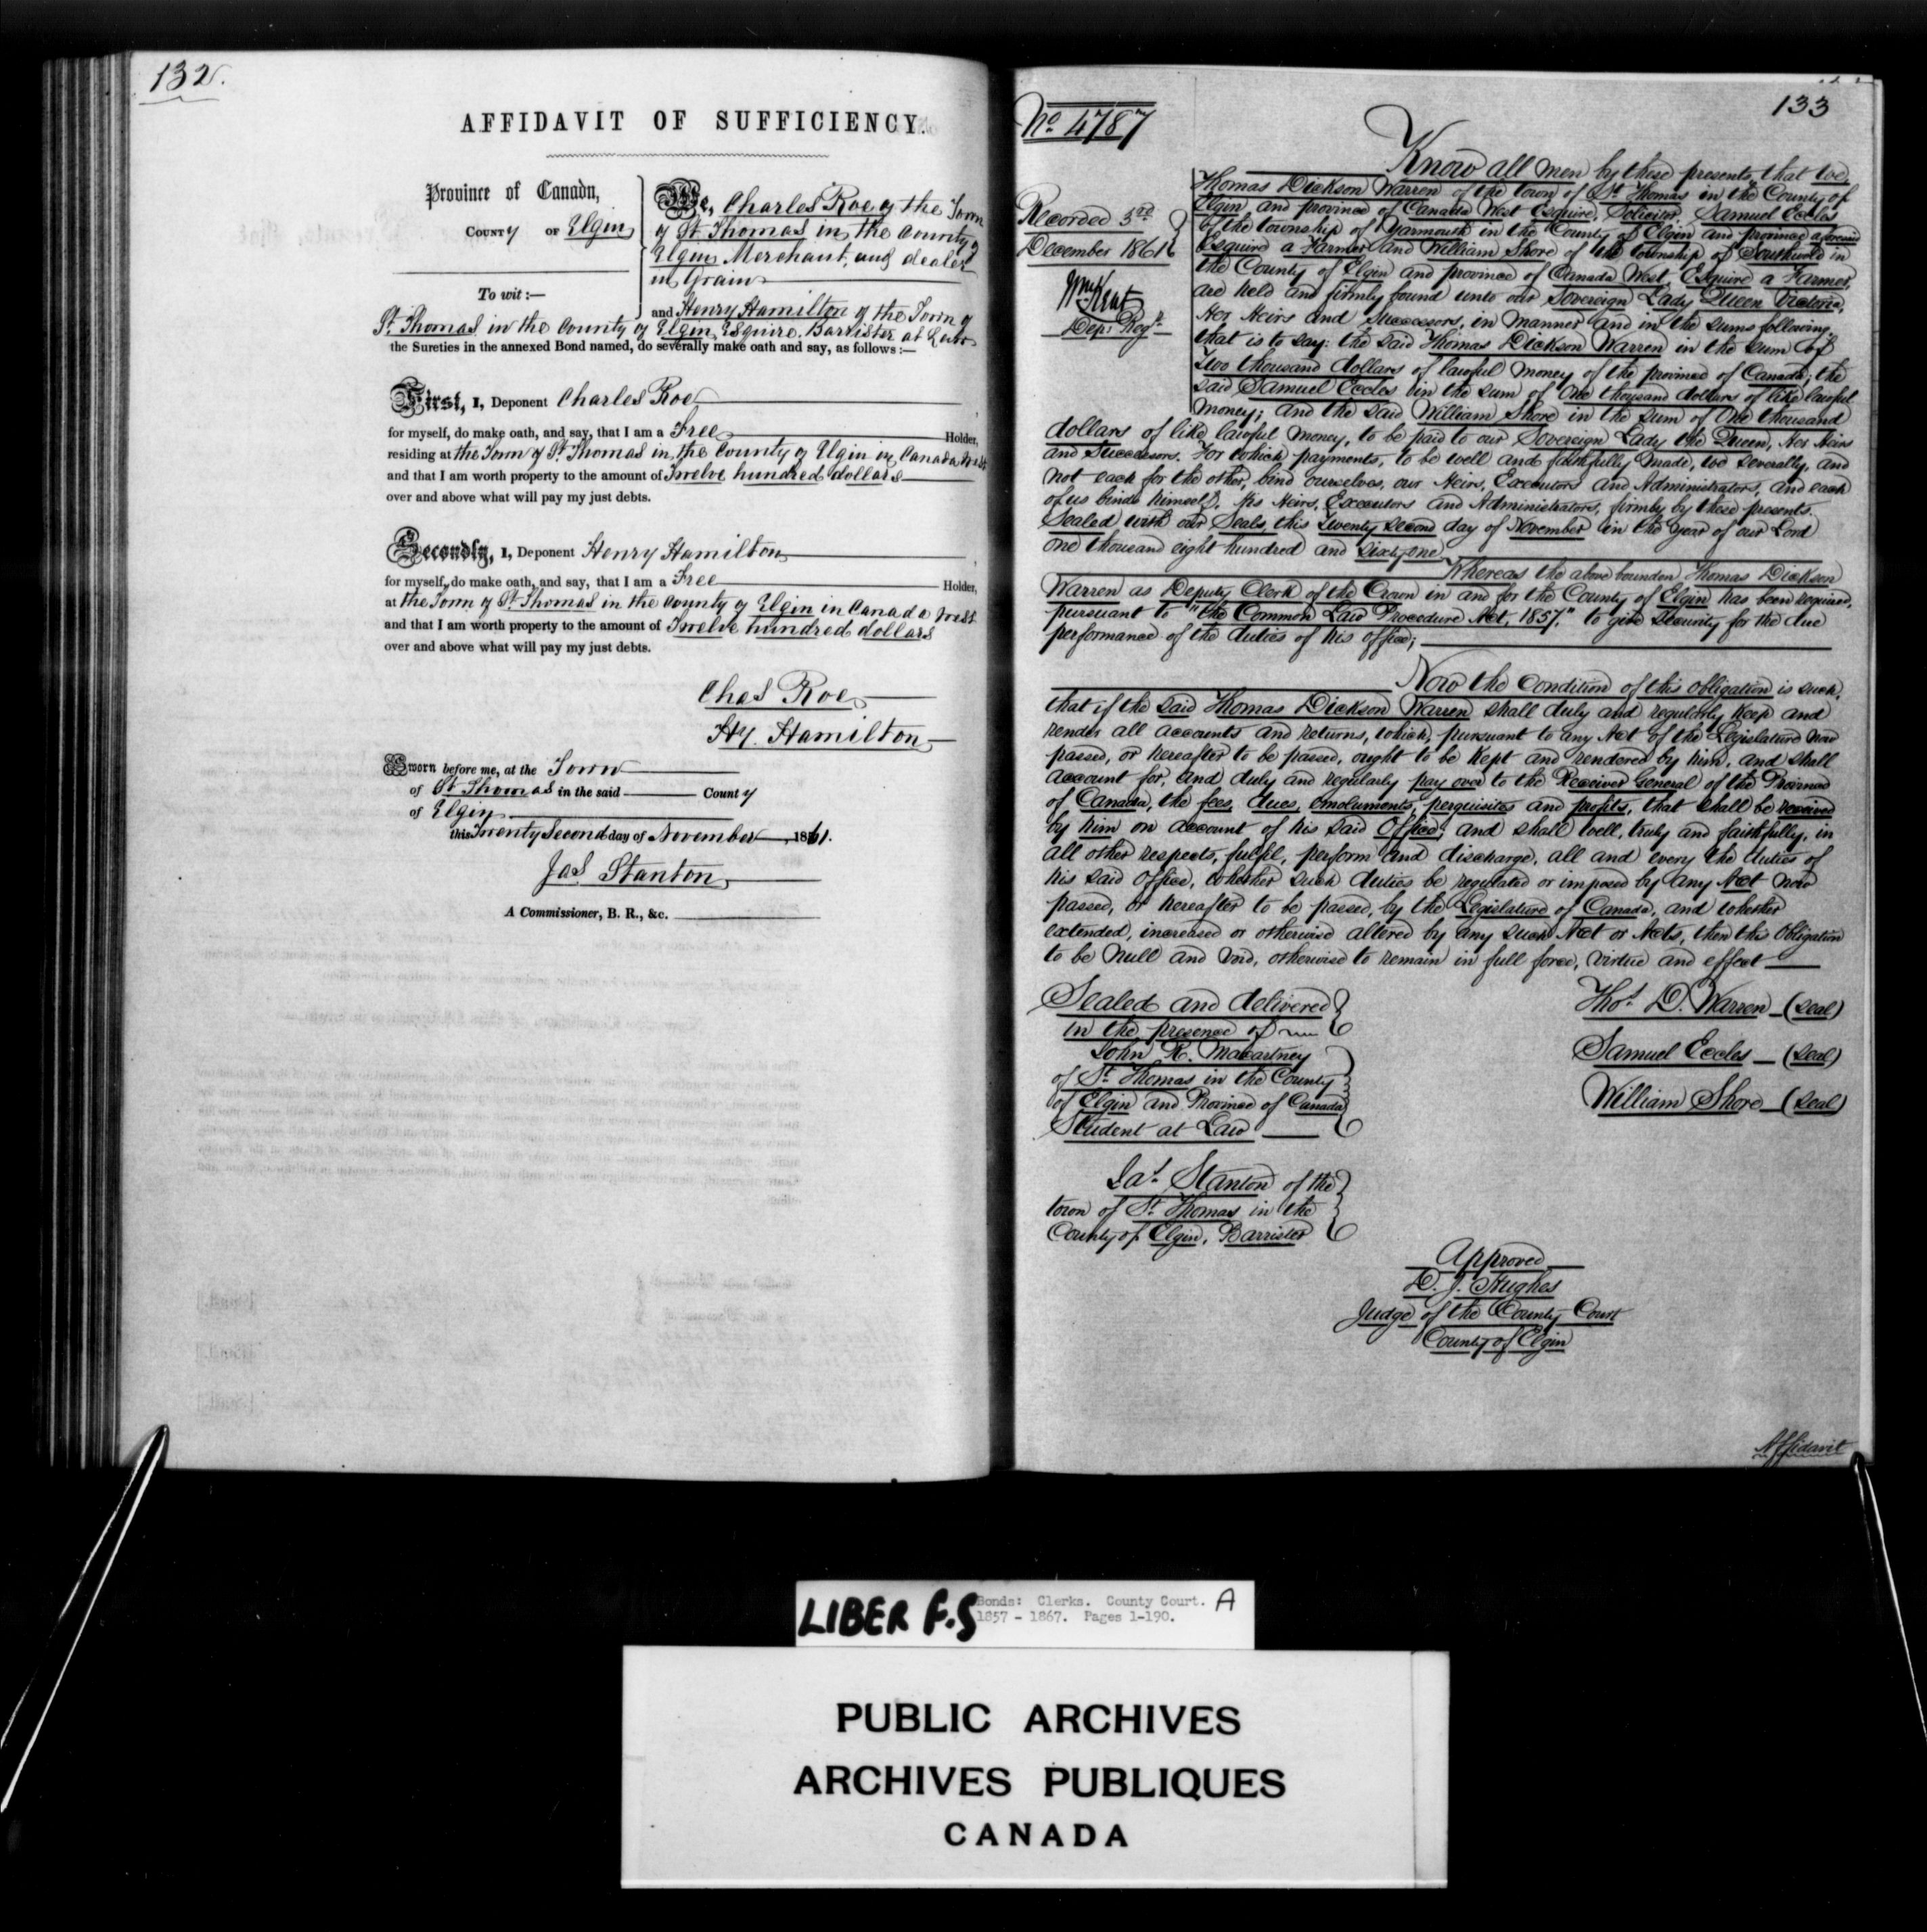 132.
AFFIDAVIT OF SUFFICIENCY.
Province of Canada,
COUNTY OF Elgin
To wit:—
We, Charles Roe of the Town
of St. Thomas in the County of
Elgin Merchant, and dealer
in Grain
and Henry Hamilton of the Town of
St. Thomas in the County of Elgin Esquire. Barrister at Law
the Sureties in the annexed Bond named, do severally make oath and say, as follows:—
First, I, Deponent Charles Roe
for myself, do make oath, and say, that I am a Free Holder,
residing at the Town of St. Thomas in the County of Elgin in Canada West
and that I am worth property to the amount of Twelve hundred dollars
over and above what will pay my just debts.
Secondly, I, Deponent Henry Hamilton
for myself, do make oath, and say, that I am a Free Holder,
at the Town of St. Thomas in the County of Elgin in Canada West
and that I am worth property to the amount of Twelve hundred dollars
over and above what will pay my just debts.
Chas Roe
Hy. Hamilton
Sworn before me, at the Town
of St. Thomas in the said County
of Elgin
this Twenty Second day of November 1861.
Jas Stanton
A Commissioner, B. R., &c.
133
No. 4787
Recorded 3rd
December 1861
Wm Kent
Dep: Regr
Know all men by these presents, that we,
Thomas Dickson Warren of the town of St. Thomas in the County of
Elgin and province of Canada West Esquire, Solicitor. Samuel Eccles
of the township of Yarmouth in the County of Elgin and province aforesaid
Esquire a Farmer and William Shore of the township of Southwold in
the County of Elgin and province of Canada West, Esquire a Farmer,
are held and firmly bound unto our Sovereign Lady Queen Victoria,
Her Heirs and Successors, in manner and in the sums following.
that is to say: the said Thomas Dickson Warren in the sum of
Two thousand dollars of lawful money of the province of Canada; the
said Samuel Eccles in the sum of One thousand dollars of like lawful
money; and the said William Shore in the sum of One thousand
dollars of like lawful money, to be paid to our Sovereign Lady the Queen, Her Heirs
and Successors. For which payments, to be well and faithfully made, we severally, and
not each for the other, bind ourselves, our Heirs, Executors and Administrators, and each
of us binds himself, His Heirs, Executors and Administrators, firmly by these presents.
Sealed with our Seals, this Twenty second day of November in the year of our Lord
one thousand eight hundred and sixty one
Whereas the above bounden Thomas Dickson
Warren as Deputy Clerk of the Crown in and for the County of Elgin has been required,
pursuant to "the Common Law Procedure Act, 1857." to give Security for the due
performance of the duties of his office;
Now the Condition of this obligation is such,
that if the said Thomas Dickson Warren shall duly and regularly keep and
render all accounts and returns, which, pursuant to any Act of the Legislature now
passed, or hereafter to be passed, ought to be kept and rendered by him, and shall
account for, and duly and regularly pay over to the Receiver General of the Province
of Canada, the fees, dues, emoluments, perquisites and profits, that shall be received
by him on account of his said Office; and shall well, truly and faithfully, in
all other respects, fulfil, perform and discharge, all and every the duties of
his said Office, whether such duties be regulated or imposed by any Act now
passed, or hereafter to be passed, by the Legislature of Canada, and whether
extended, increased or otherwise altered by any such Act or Acts, then this obligation
to be null and void, otherwise to remain in full force, virtue and effect
Sealed and delivered
in the presence of
John R. Macartney
of St. Thomas in the County
of Elgin and Province of Canada
Student at Law
Jas. Stanton of the
town of St. Thomas in the
County of Elgin, Barrister
Thos. D. Warren (seal)
Samuel Eccles (seal)
William Shore (seal)
Approved
D. J. Hughes
Judge of the County Court
County of Elgin
Affidavit
LIBER F.S
Bonds: Clerks. County Court. A
1857 - 1867. Pages 1-190.
PUBLIC ARCHIVES
ARCHIVES PUBLIQUES
CANADA